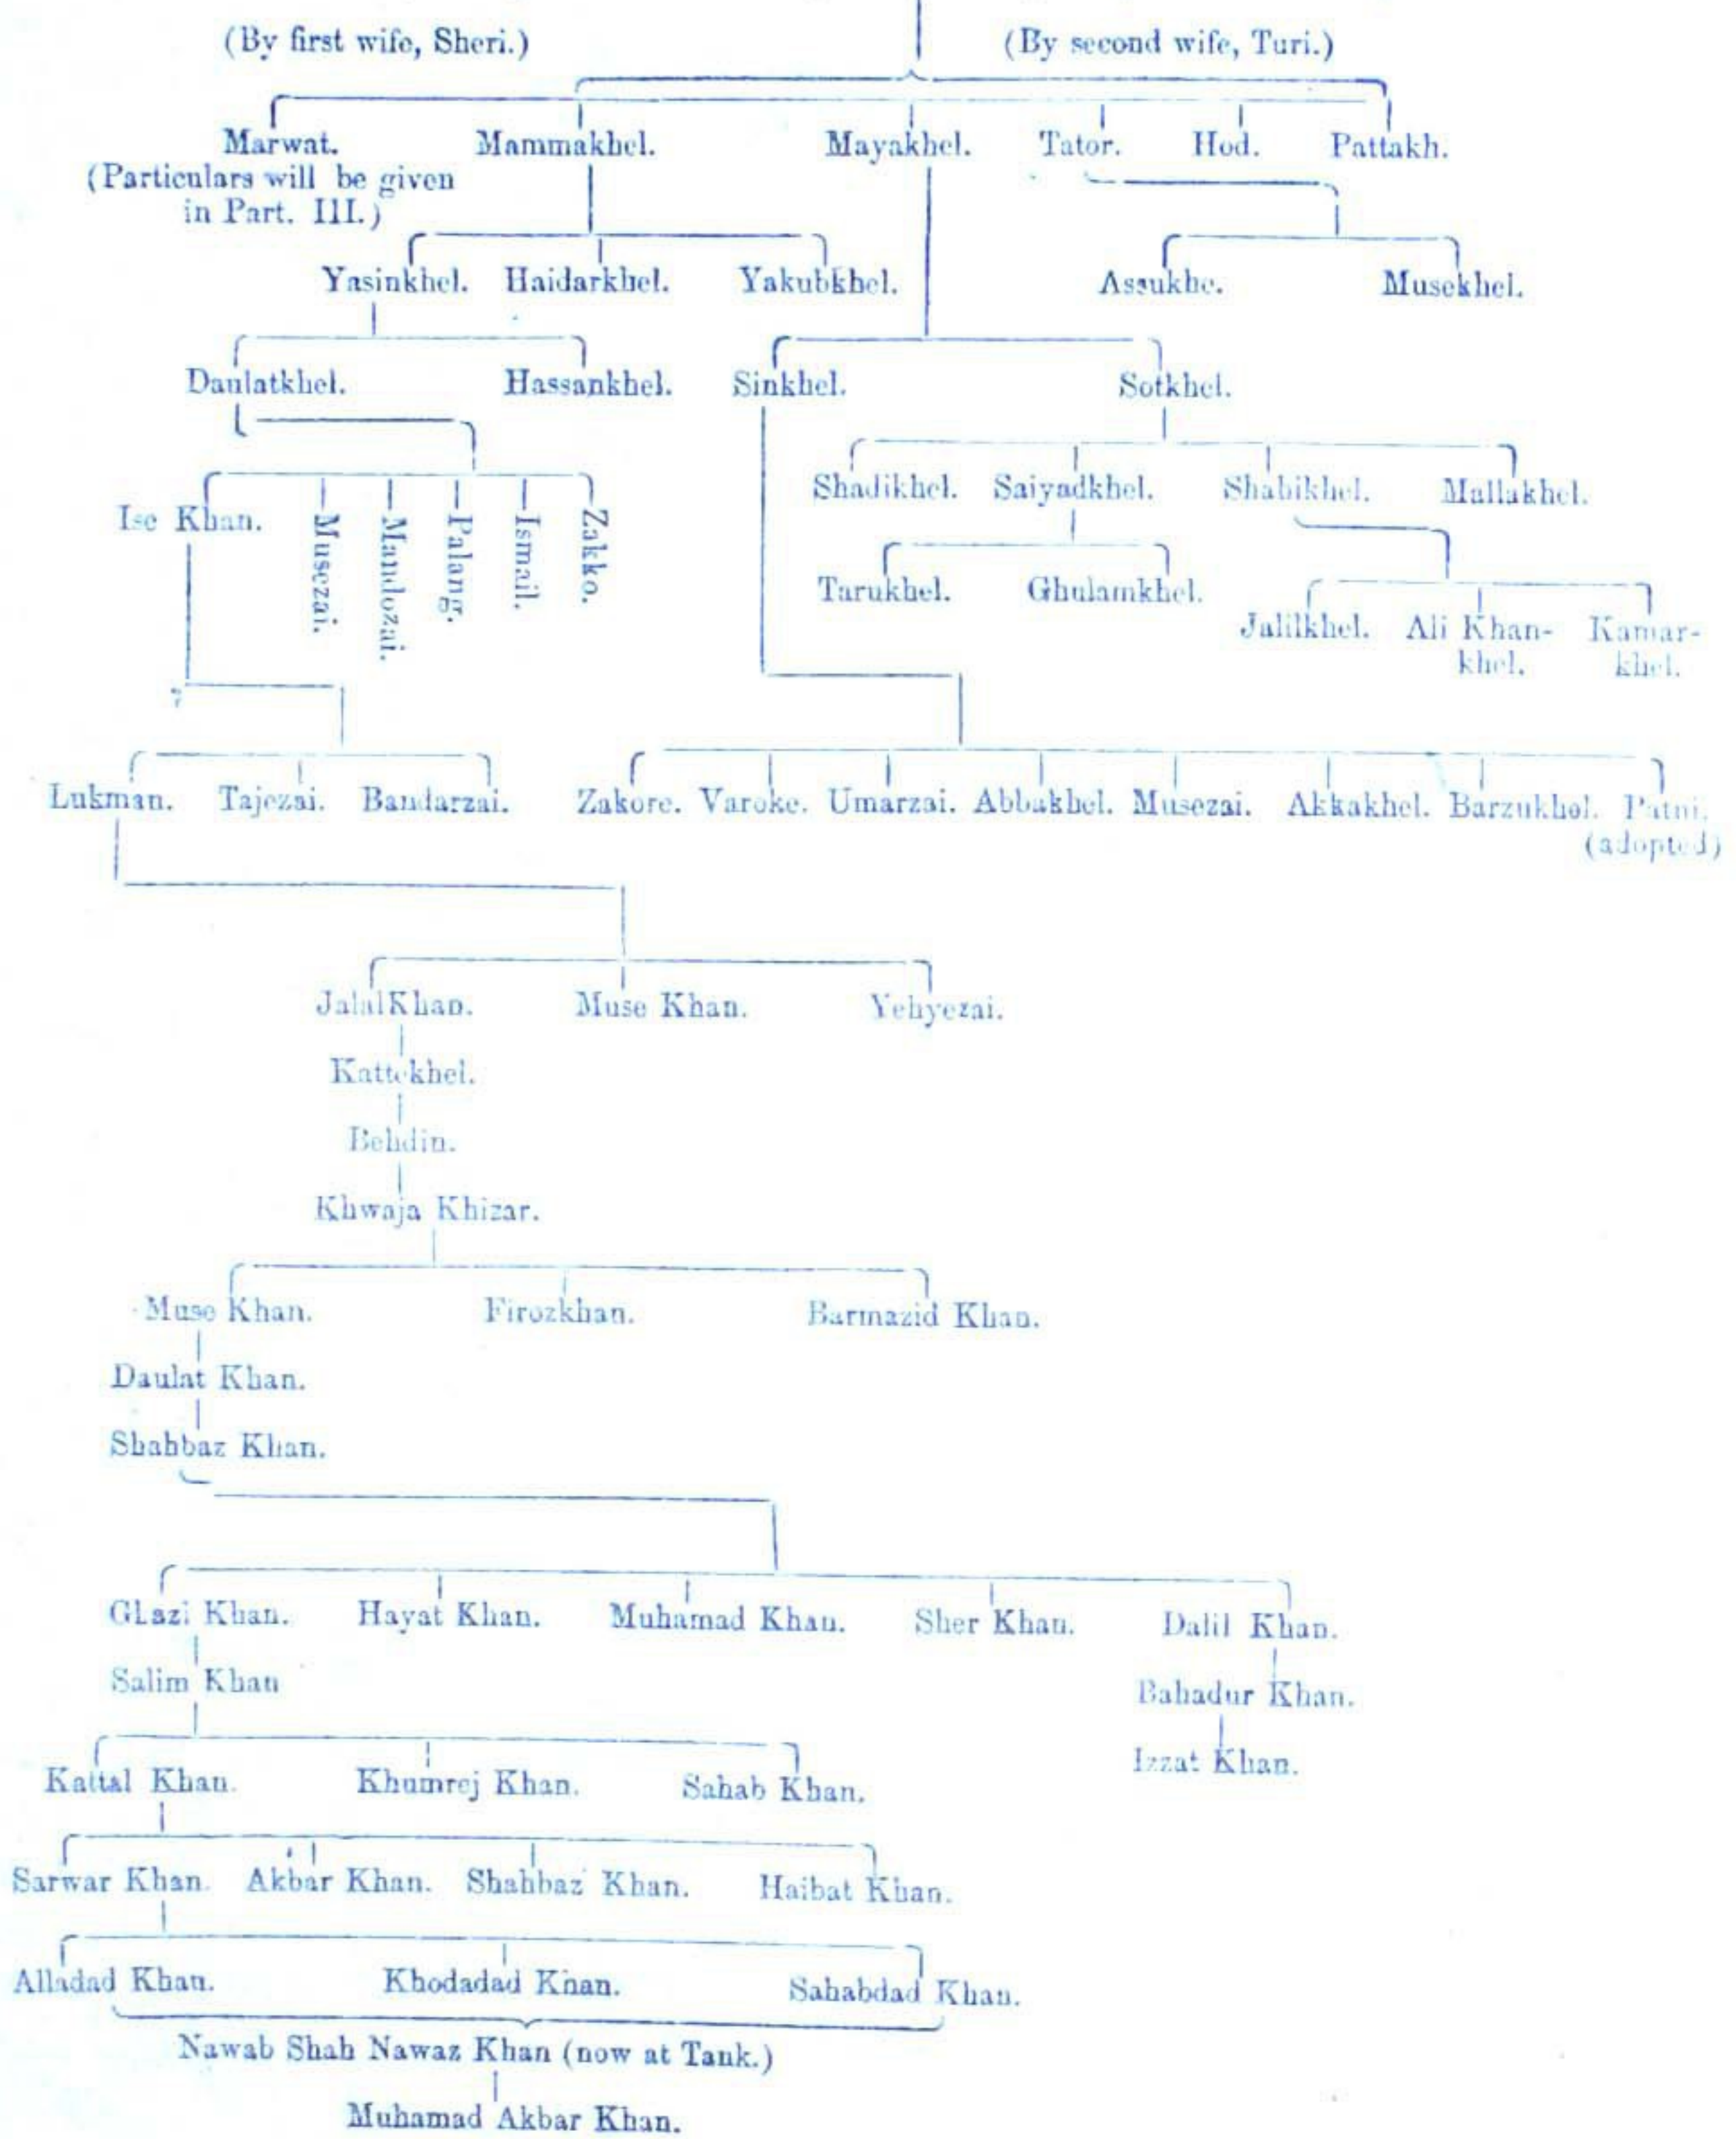 (By first wife, Sheri.) (By second wife, Turi.)
Marwat. Mammakhel. Mayakhel. Tator. Hod. Pattakh.
(Particulars will be given
in Part. III.)
Yasinkhel. Haidarkhel. Yakubkhel. Assukhe. Musekhel.
Daulatkhel. Hassankhel. Sinkhel. Sotkhel.
Shadikhel. Saiyadkhel. Shabikhel. Mallakhel.
Ise Khan. Musezai. Mandozai. Palang. Ismail. Zakko.
Tarukhel. Ghulamkhel.
Jalilkhel. Ali Khan- Kamar-
khel. khel.
Lukman. Tajezai. Bandarzai. Zakore. Varoke. Umarzai. Abbakhel. Musezai. Akkakhel. Barzukhel. Patni.
(adopted)
Jalal Khan. Muse Khan. Yehyezai.
Kattekhel.
Behdin.
Khwaja Khizar.
Muse Khan. Firozkhan. Barmazid Khan.
Daulat Khan.
Shahbaz Khan.
Ghazi Khan. Hayat Khan. Muhamad Khan. Sher Khan. Dalil Khan.
Salim Khan Bahadur Khan.
Izzat Khan.
Kattal Khan. Khumrej Khan. Sahab Khan.
Sarwar Khan. Akbar Khan. Shahbaz Khan. Haibat Khan.
Alladad Khan. Khodadad Khan. Sahabdad Khan.
Nawab Shah Nawaz Khan (now at Tank.)
Muhamad Akbar Khan.